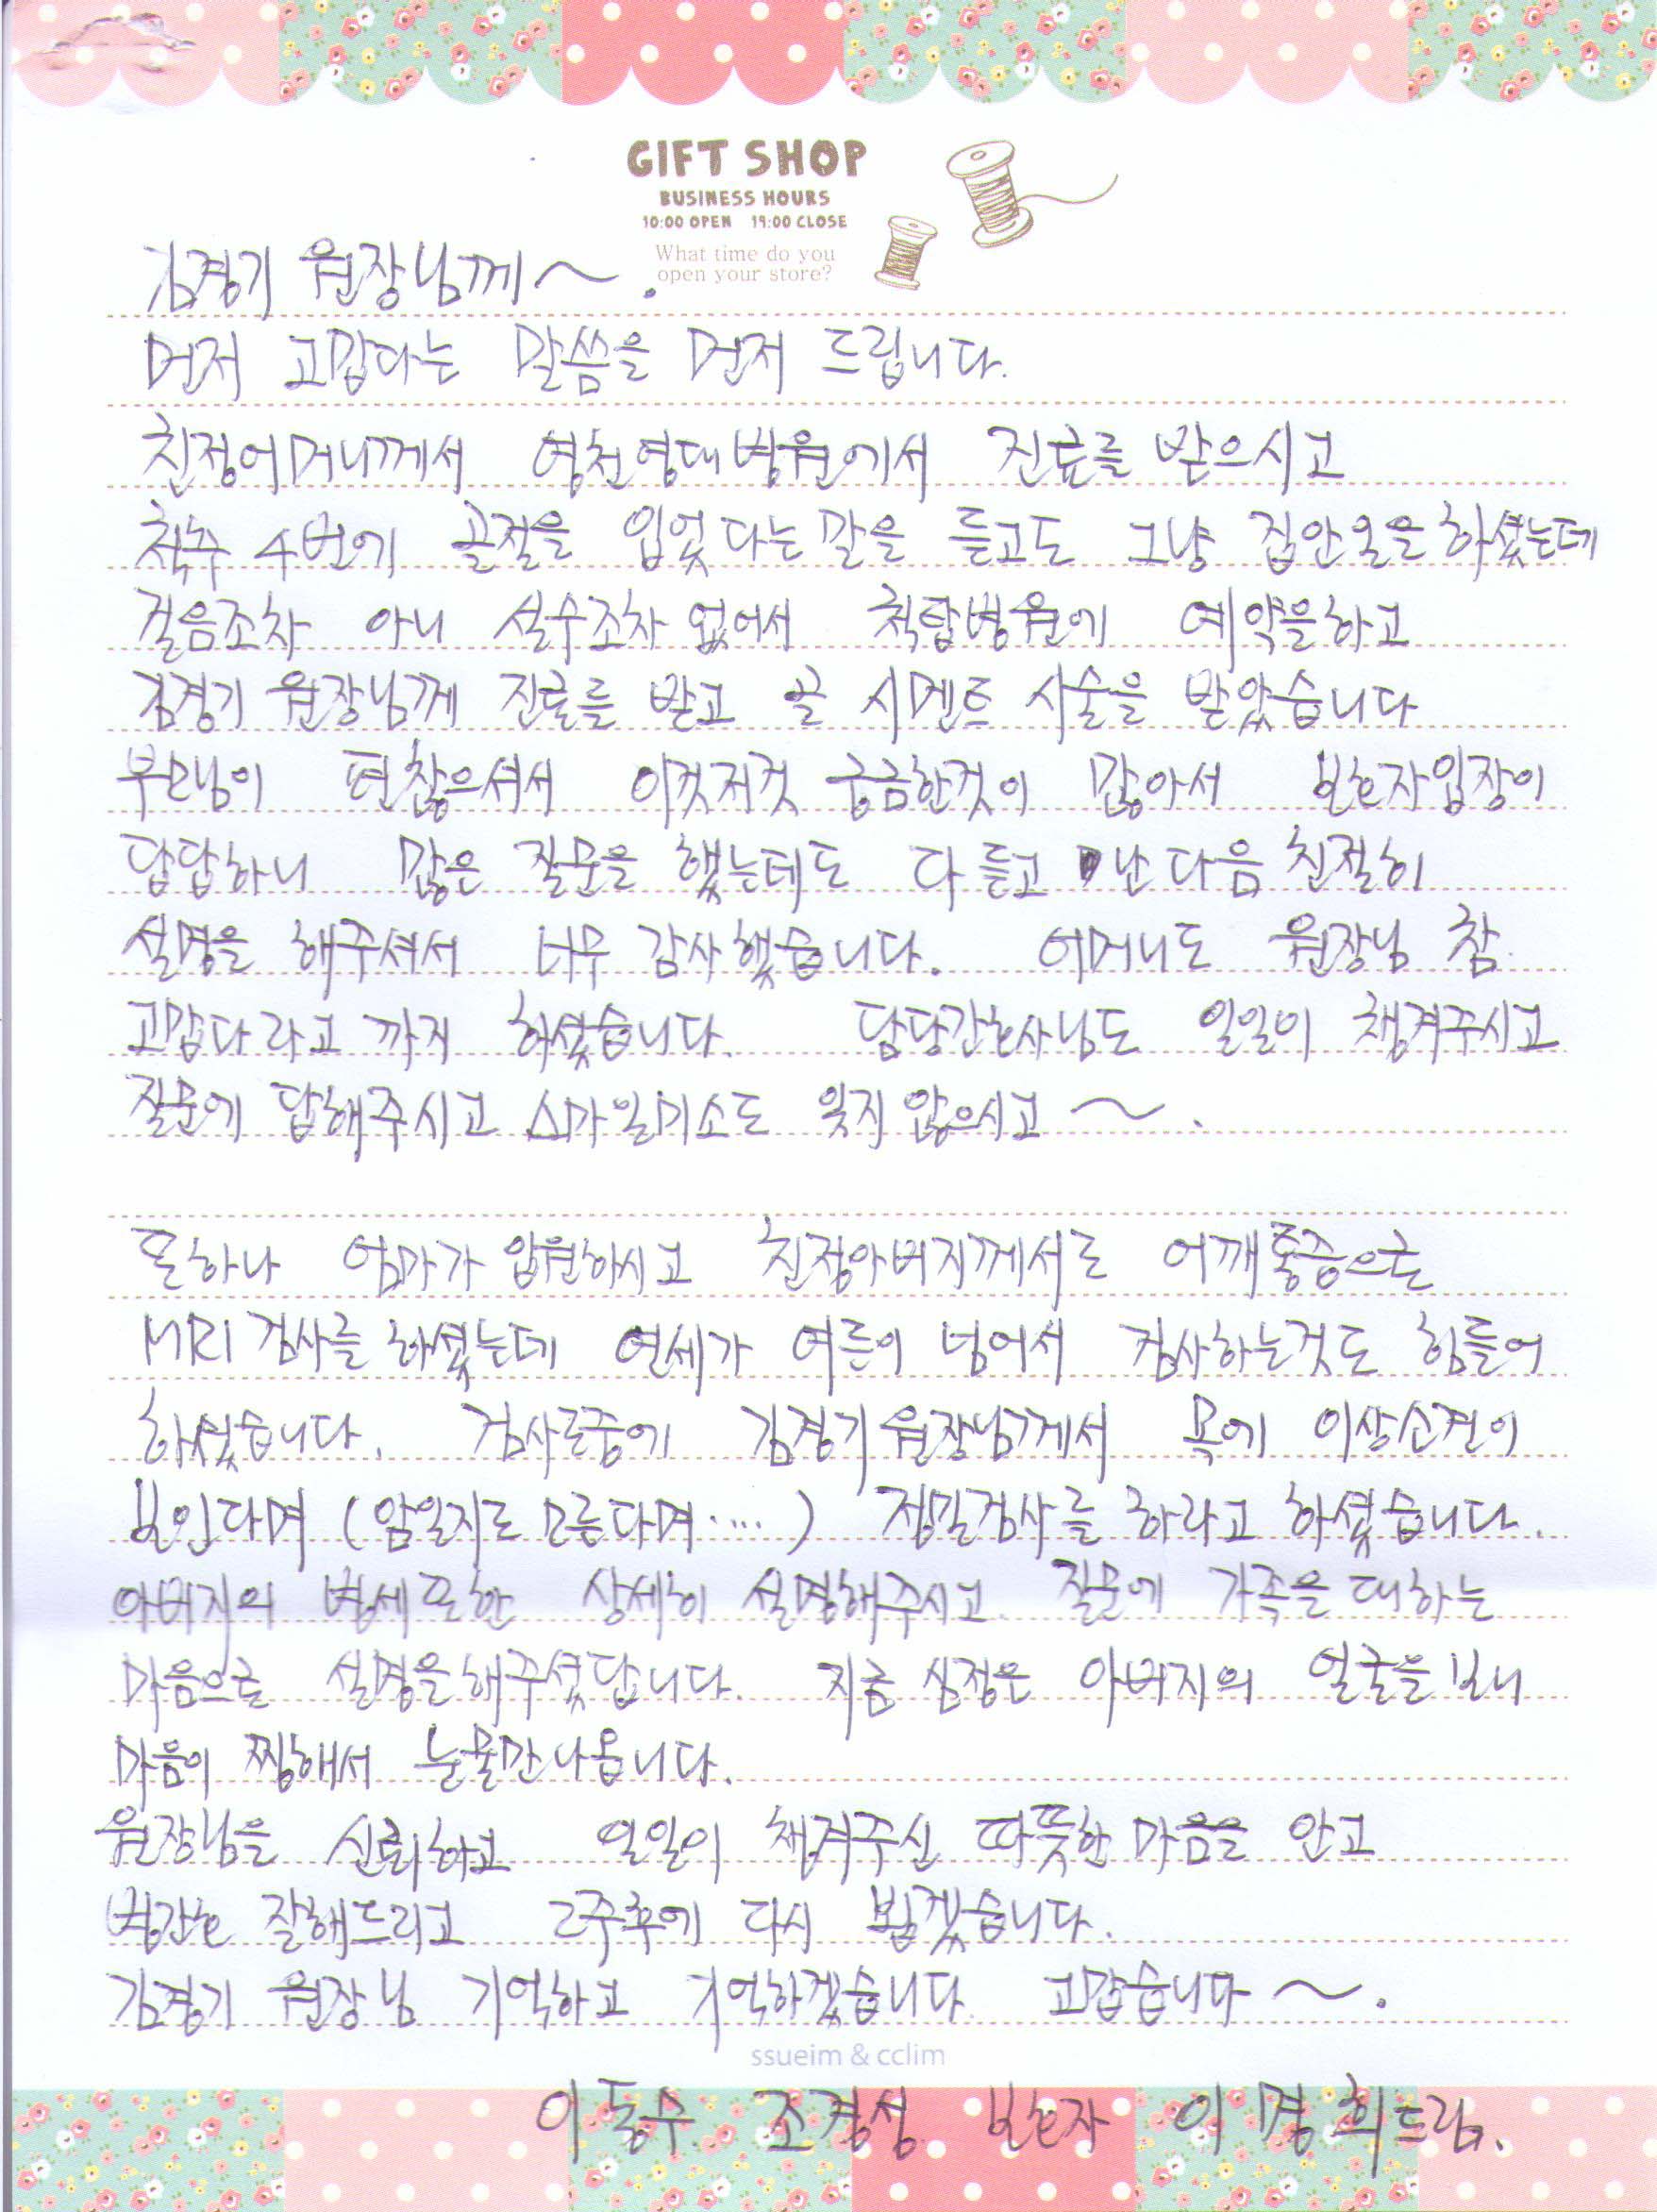 GIFT SHOP
BUSINESS HOURS
10:00 OPEN 19:00 CLOSE
What time do you
open your store?
김경기 원장님께~.
먼저 고맙다는 말씀을 먼저 드립니다.
친정어머니께서 영천영대병원에서 진료를 받으시고
척추 4번에 골절을 입었다는 말을 듣고도 그냥 집안일을 하셨는데
걸음조차 아니 설수조차 없어서 척탑병원에 예약을하고
김경기 원장님께 진료를 받고 골 시멘트 시술을 받았습니다
부모님이 편찮으셔서 이것저것 궁금한것이 많아서 보호자입장이
답답하니 많은 질문을 했는데도 다 듣고 난 다음 친절히
설명을 해주셔서 너무 감사했습니다. 어머니도 원장님 참
고맙다라고 까지 하셨습니다. 담당간호사님도 일일이 챙겨주시고
질문에 답해주시고 스마일미소도 잊지 않으시고~.
또하나 엄마가 입원하시고 친정아버지께서도 어깨통증으로
MRI 검사를 하셨는데 연세가 여든이 넘어서 검사하는것도 힘들어
하셨습니다. 검사도중에 김경기원장님께서 목에 이상소견이
보인다며 (암일지도 모른다며.....) 정밀검사를 하라고 하셨습니다.
아버지의 병세 또한 상세히 설명해주시고 질문에 가족을 대하는
마음으로 설명을해주셨답니다. 지금 심정은 아버지의 얼굴을 보니
마음이 찡해서 눈물만나옵니다.
원장님을 신뢰하고 일일이 챙겨주신 따뜻한 마음을 안고
병간호 잘해드리고 2주후에 다시 뵙겠습니다.
김경기 원장님 기억하고 기억하겠습니다. 고맙습니다~.
ssueim & cclim
이동수 조경성 보호자 이명희드림.